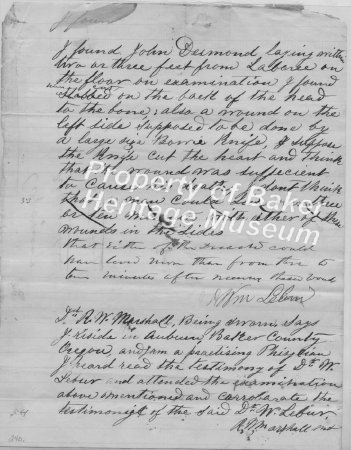 I found
I found John Desmond laying within
two or three feet from Laborie on
the floor on examination I found
on the back of the head
to the bone, also a wound on the
left side supposed to be done by
a large size Bowie Knife, I suppose
the Knife cut the heart and think
that wound was sufficient
to cause I don't think
that a man could
or ten with either of these
wounds in the sides
that either of the could
have lived more than from five to
ten minutes after receiving these wounds
Wm Lebur
Property of Baker
Heritage Museum
Dr. R. W. Marshall, Being sworn says
I reside in Auburn Baker County
Oregon, and am a practising Phisician
I heard read the testimony of Dr. W
Lebur and attended the examination
above mentioned and corroborate the
testimony of the said Dr. W. Lebur
R W Marshall